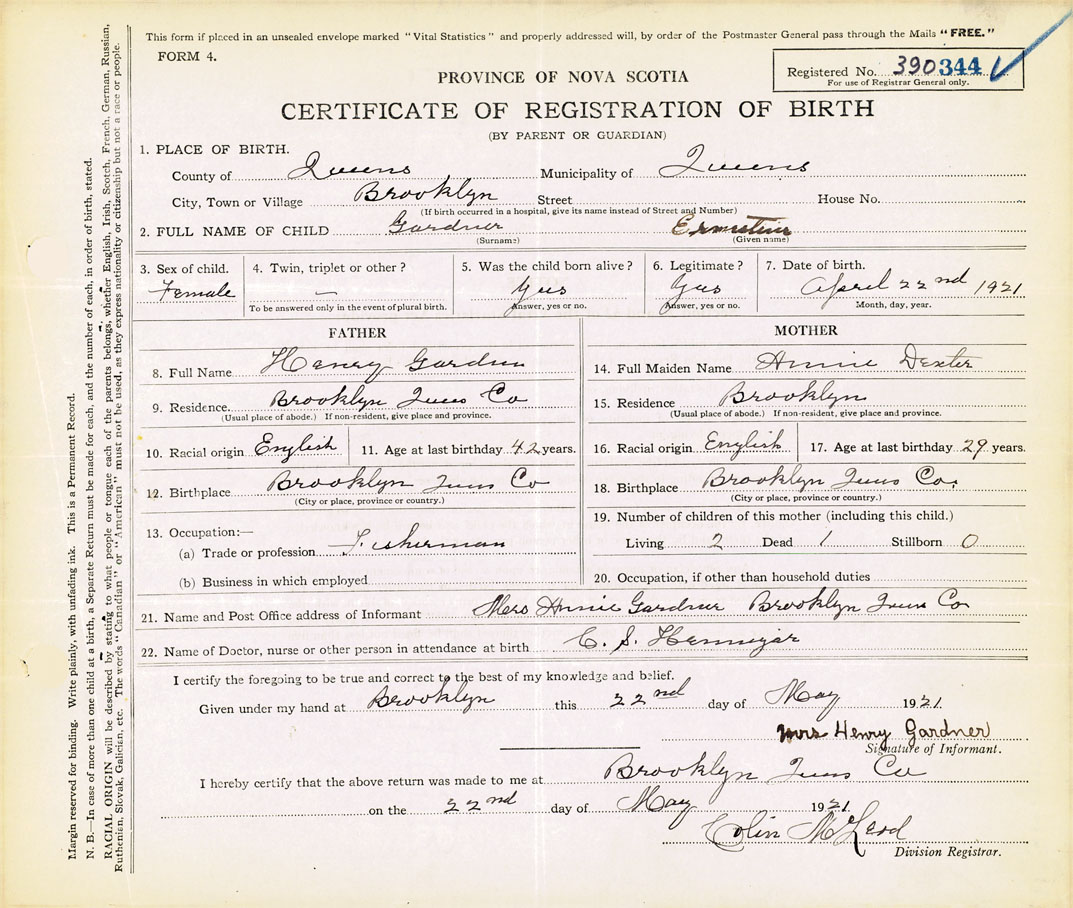 This form if placed in an unsealed envelope marked "Vital Statistics" and properly addressed will, by order of the Postmaster General pass through the Mails "FREE."
FORM 4.
Registered No. 390344
For use of Registrar General only.
PROVINCE OF NOVA SCOTIA
CERTIFICATE OF REGISTRATION OF BIRTH
(BY PARENT OR GUARDIAN)
1. PLACE OF BIRTH.
County of Queens Municipality of Queens
City, Town or Village Brooklyn Street House No.
(If birth occurred in a hospital, give its name instead of Street and Number)
2. FULL NAME OF CHILD Gardner Ernestine
(Surname) (Given name)
3. Sex of child. 4. Twin, triplet or other? 5. Was the child born alive? 6. Legitimate? 7. Date of birth.
Female — Yes Yes April 22nd 1921
To be answered only in the event of plural birth. Answer, yes or no. Answer, yes or no. Month, day, year.
FATHER
8. Full Name Henry Gardner
9. Residence. Brooklyn Queens Co
(Usual place of abode.) If non-resident, give place and province.
10. Racial origin English 11. Age at last birthday 42 years.
12. Birthplace Brooklyn Queens Co
(City or place, province or country.)
13. Occupation:—
(a) Trade or profession Fisherman
(b) Business in which employed
MOTHER
14. Full Maiden Name Annie Dexter
15. Residence Brooklyn
(Usual place of abode.) If non-resident, give place and province.
16. Racial origin English 17. Age at last birthday 29 years.
18. Birthplace Brooklyn Queens Co.
(City or place, province or country.)
19. Number of children of this mother (including this child.)
Living 2 Dead 1 Stillborn 0
20. Occupation, if other than household duties
21. Name and Post Office address of Informant Mrs Annie Gardner Brooklyn Queens Co
22. Name of Doctor, nurse or other person in attendance at birth C. S. Hennigar
I certify the foregoing to be true and correct to the best of my knowledge and belief.
Given under my hand at Brooklyn this 22nd day of May 1921.
Mrs Henry Gardner
Signature of Informant.
I hereby certify that the above return was made to me at Brooklyn Queens Co
on the 22nd day of May 1921.
Colin McLeod
Division Registrar.
Margin reserved for binding. Write plainly, with unfading ink. This is a Permanent Record.
N. B.—In case of more than one child at a birth, a Separate Return must be made for each, and the number of each, in order of birth, stated.
RACIAL ORIGIN will be described by stating to what people or tongue each of the parents belongs, whether English, Irish, Scotch, French, German, Russian,
Ruthenian, Slovak, Galician, etc. The words "Canadian" or "American" must not be used, as they express nationality or citizenship but not a race or people.